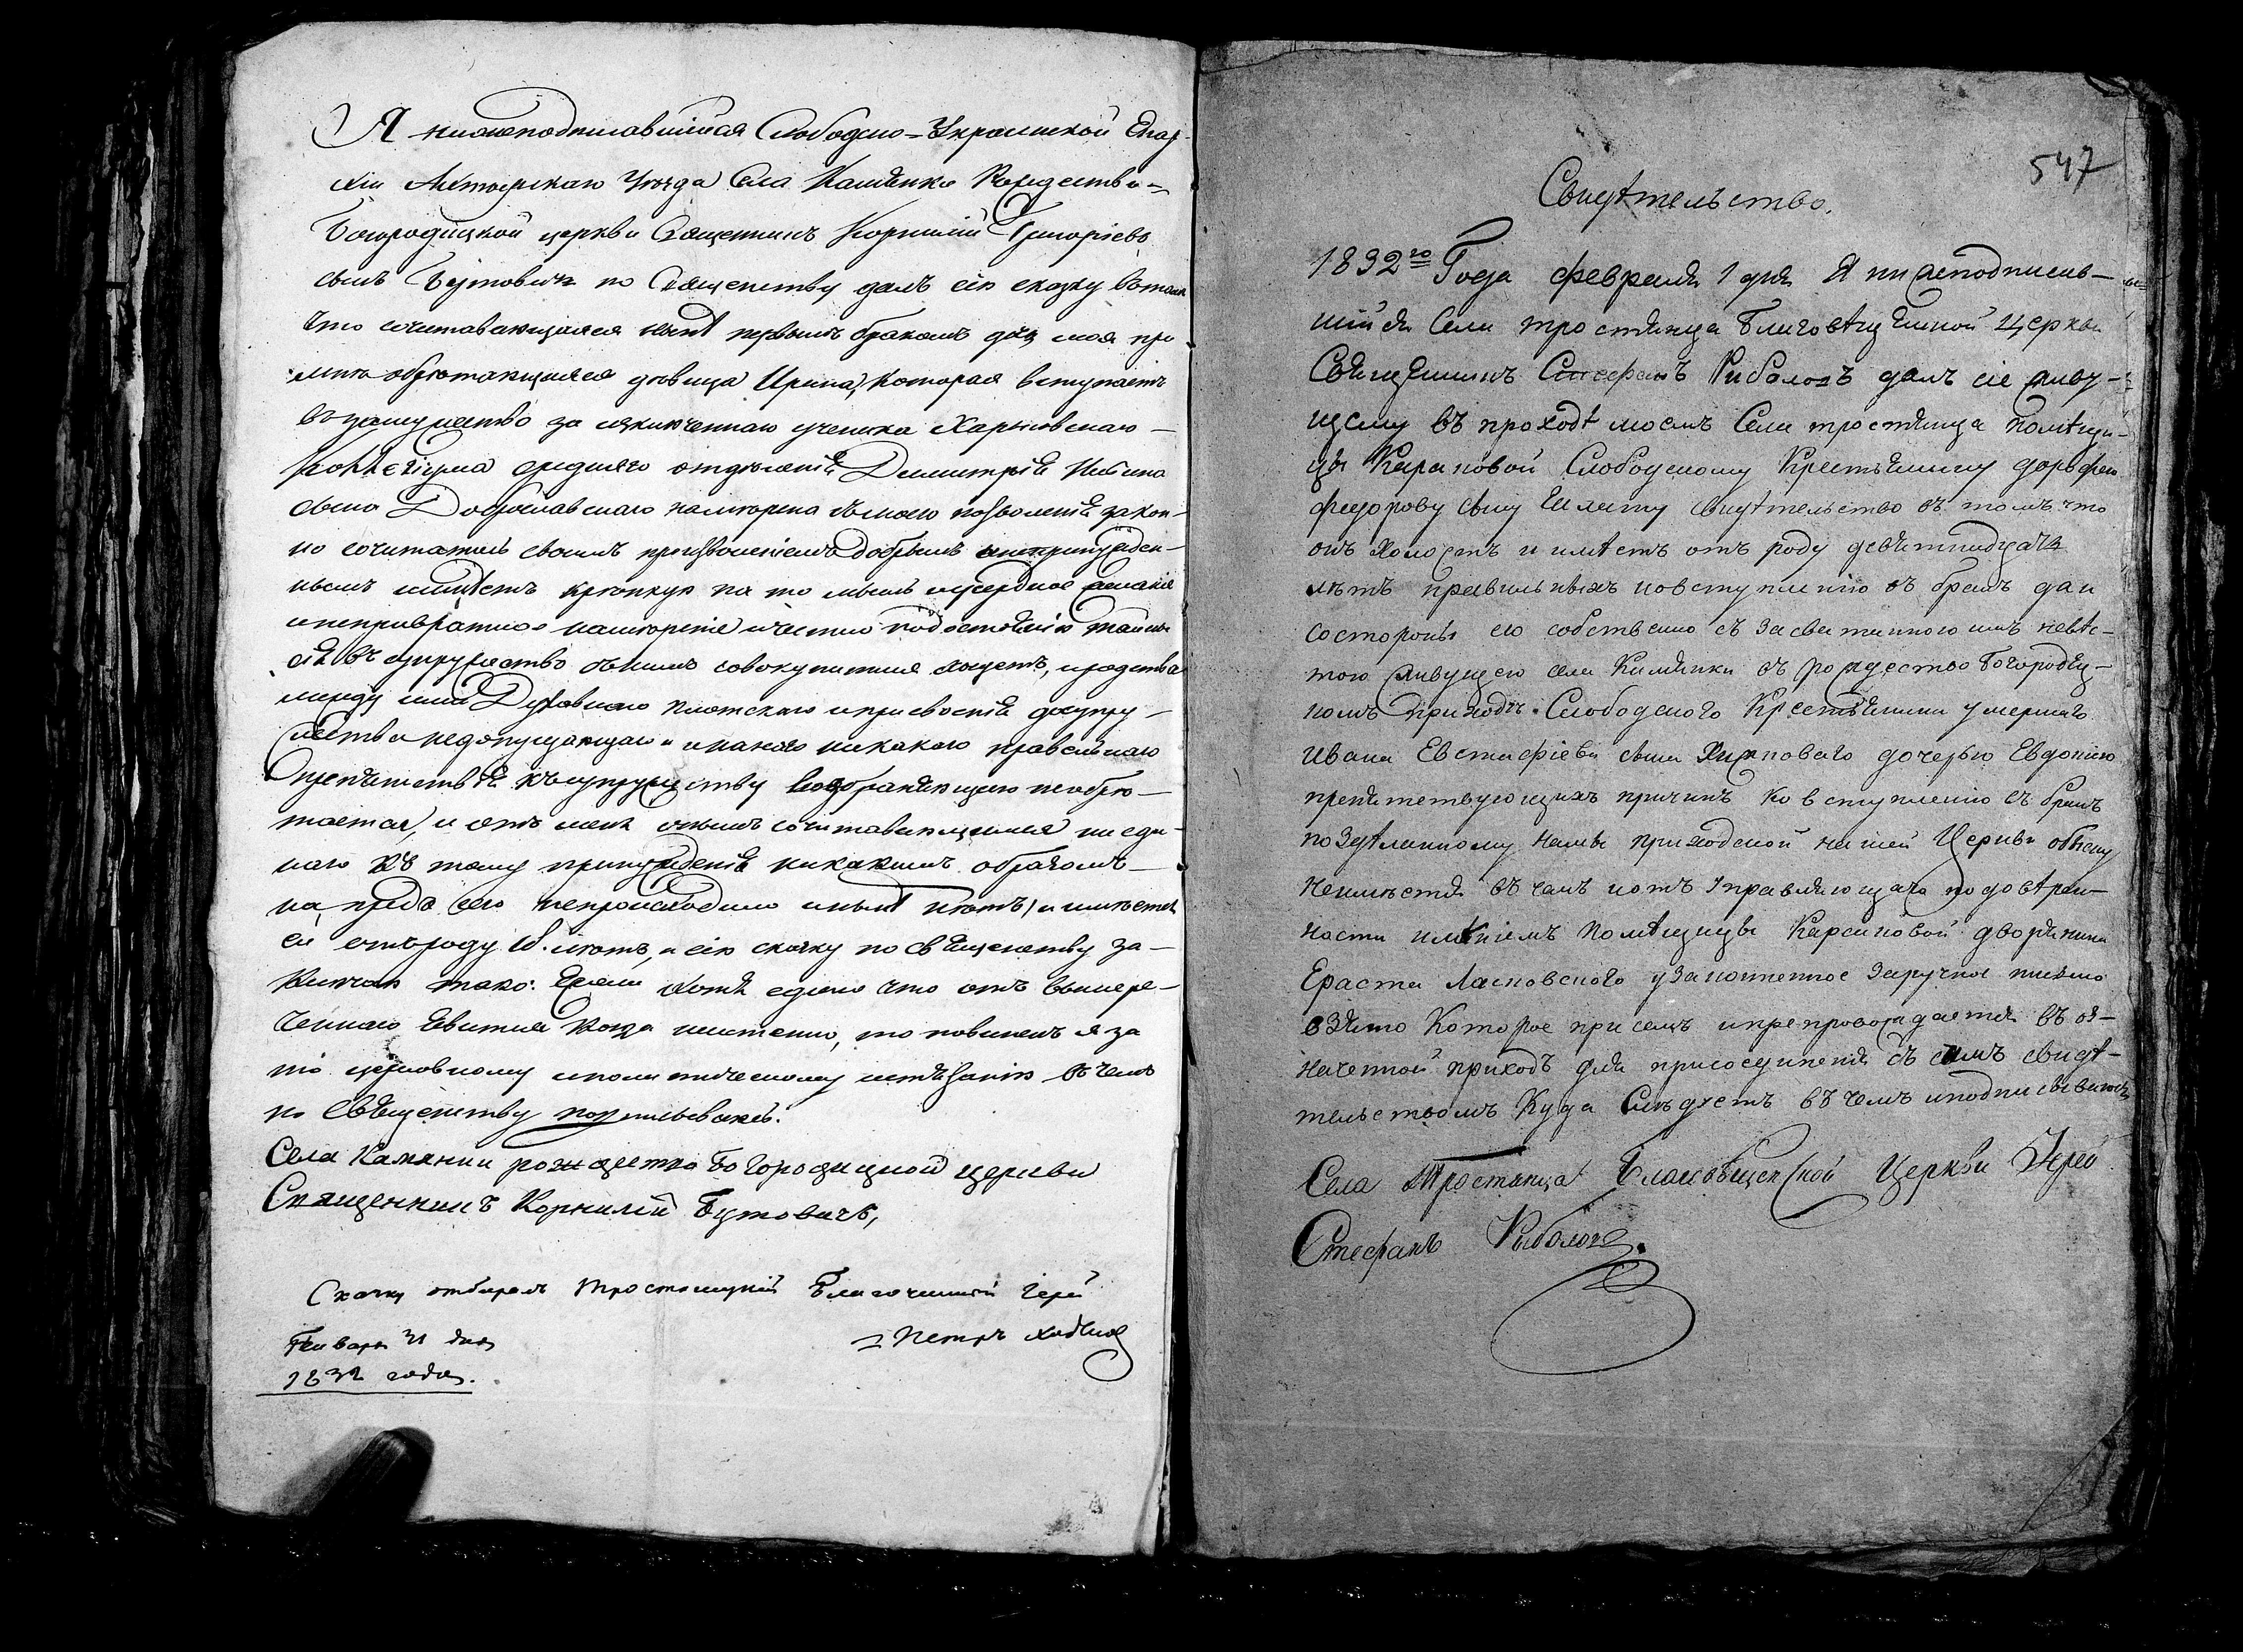 Я нижеподписавшійся Слободско-Украинской Епар-
хіи Ахтырскаго Уѣзда Села Камянки Рождество-
Богородицкой церкви Священникъ Корнилій Григорьевъ
сынъ Бутовичъ по Священству далъ сію сказку въ томъ
что сочетавающаяся нынѣ первымъ бракомъ дщ моя при
мнѣ обрѣтающаяся дѣвица Ирина, которая вступаетъ
въ замужество за изключеннаго ученика Харьковскаго
Коллегіума средняго отдѣленія Димитрія
сына Доброславскаго намѣрена съ моего позволенія закон-
но сочетатись своимъ произволеніемъ добрымъ и непринужден-
нымъ и имѣетъ крѣпкую на то мысль и усердное желаніе
и непревратное намѣреніе и честно
въ супружество съ нимъ совокупитися хощетъ, и родства
между ими Духовнаго плотскаго и присвоенія до супру-
жества недопущающаго и инаго никакого правильнаго
препятствія къ супружеству возбраняющаго необрѣ-
тается, и отъ мене онымъ сочетавающимся ни еди-
наго къ тому принужденія никакимъ образомъ
на предъ сего непроисходило и нынѣ нѣтъ, и имѣется
ей отъ роду 18. лѣтъ, и сію сказку по священству за-
ключаю тако: Ежели хотя едино что отъ вышере-
ченнаго явится когда неистенно, то повиненъ я за
то церковному и политическому истязанію въ чемъ
по Священству подписываюсь.
Села Камянки рождество Богородицкой церкви
Священникъ Корнилій Бутовичъ,
Сказку отбиралъ Тростянецкій Благочинный Іерей
Петръ
Генваря 31 дня
1832 года.
547
Свидѣтельство.
1832го Года февраля 1 дня Я нижеподписав-
шійся Села тростянца Благовѣщенской Церкви
Священникъ Стефанъ Рибаловъ далъ сіе живу-
щему въ приходѣ моемъ Села тростянца помѣщи-
цы Карсаковой Слободскому Крестьянину дорофею
федорову сыну свидѣтельство въ томъ что
онъ холостъ и имѣетъ отъ роду девятнадцать
лѣтъ правильныхъ по вступленію въ бракъ да и
со стороны его собственно съ засватанною имъ невѣс-
тою живущею села Камянки въ рождество Богородиц-
комъ приходѣ Слободского Крестьянина умершаго
Ивана Евстафіева сына дочерью Евдокіею
препятствующихъ причинъ ко вступленію въ бракъ
по здѣланному нами приходской нашей Церкви обыску
неимѣется въ чемъ и отъ Управляющаго по довѣрен-
ности имѣніемъ помѣщицы Карсаковой дворянина
Ераста Ласковского узаконенное заручное письмо
взято Которое при семъ и препровождается въ оз-
наченной приходъ для присоединенія съ симъ свидѣ-
тельствомъ Куда Слѣдуетъ въ чемъ и подписываюсь
Села Тростянца Благовѣщенской Церкви Іерей
Стефанъ Рыбалов